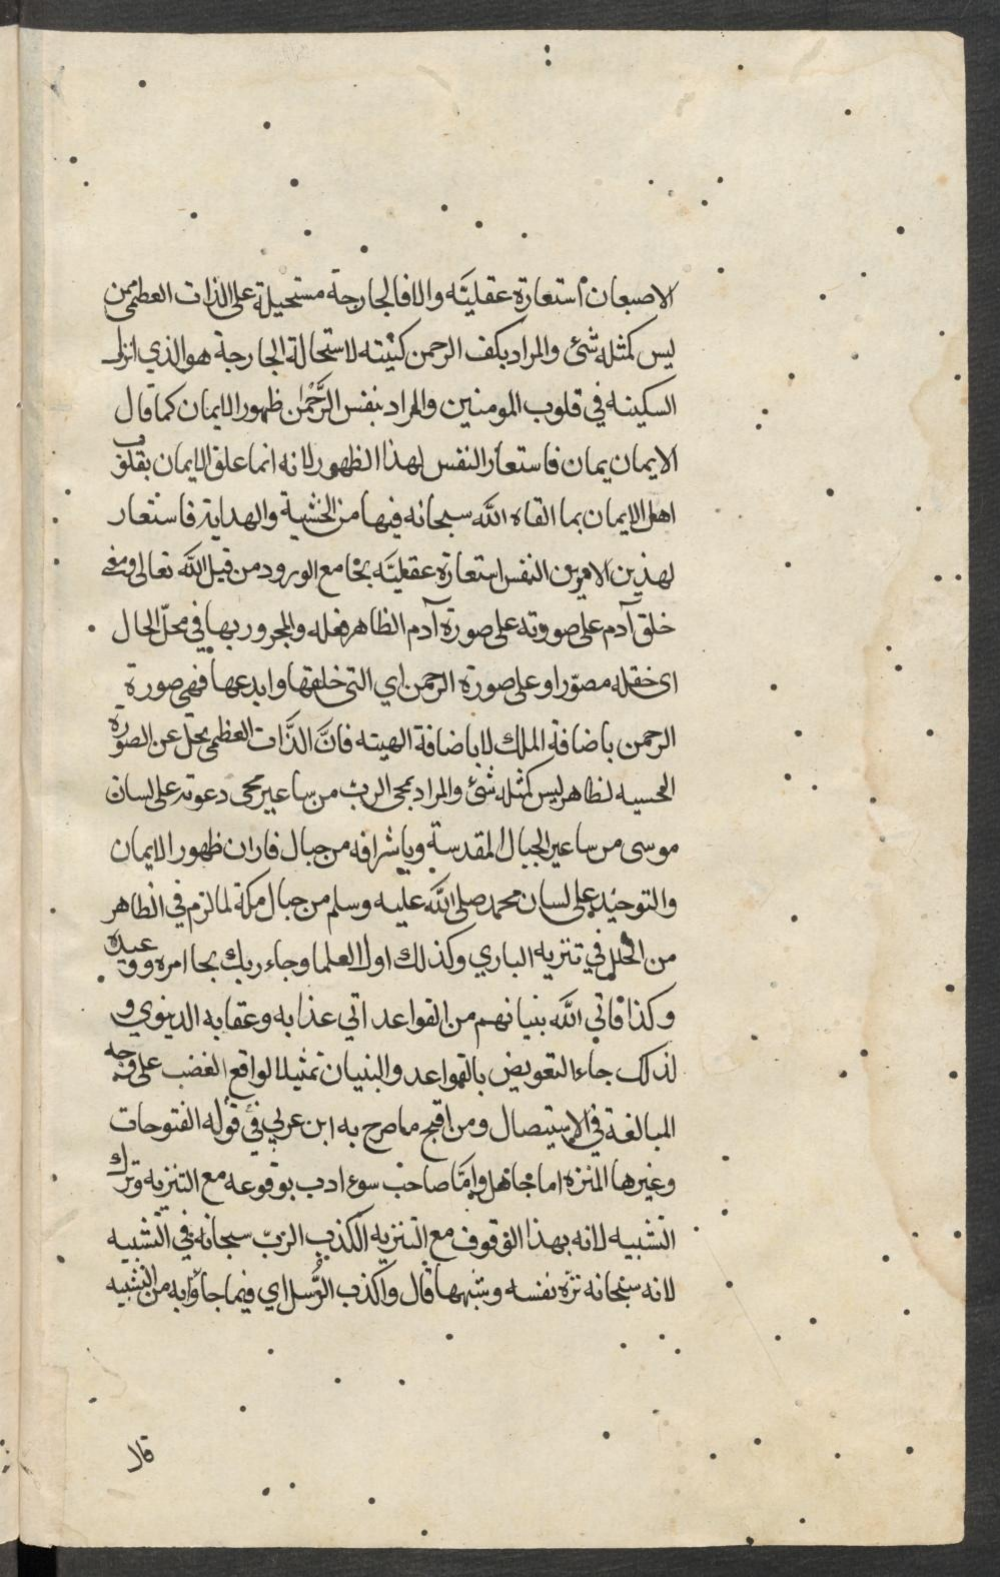 الاصبعان استعارة عقليّه والا فالجارحة مستحيلة على الذات العظمى من
ليس كمثله شئ والمراد بكف الرحمن كنيته لاستحالة الجارحة هو الذي انزل
السكينه في قلوب المومنين والمراد بنفس الرَّحْمٰن ظهور الايمان كما قال
الايمان يمان فاستعار النفس لهذا الظهور لانه انما علق الايمان بقلوب
اهل الايمان بما القاه الله سبحانه فيها من الخشية والهداية فاستعار
لهذين الامرين النفس استعارة عقليّه بخامع الورود من قبل الله تعالى ومغ
خلق آدم على صووته على صورة آدم الظاهر فعله والمجرور بها في محلّ الحال
اى خقله مصوّرا وعلى صورة الرحمن اي التى خلقها وابدعها فهى صورة
الرحمن باضافة الملك لا باضافة الهيته فانَّ الذَّات العظمى تجل عن الصورة
الحسيه لظاهر ليس كمثله شئ والمراد بمجى الرب من ساعير مجى دعوته على لسان
موسى من ساعير الجبال المقدسة وباشرافه من جبال فاران ظهور الايمان
والتوحيد على لسان محمد صلى الله عليه وسلم من جبال مكة لما لزم في الظاهر
من الخلل في تنزيه الباري وكذلك اول العلما وجاء ربك بحا امره ووعيده
وكذا فاتى الله بنيانهم من القواعد اتي عذابه وعقابه الدينوي و
لذلك جاء التعويض بالقواعد والبنيان تمثيلا لواقع الغضب على وجه
المبالغة في الاستيصال ومن اقبح ما صرح به ابن عربي في قوله الفتوحات
وغيرها المنزه اما جاهل وامّا صاحب سوء ادب بوقوعه مع التنزيه وترك
التشبيه لانه بهذا الوقوف مع التنزيه الكذب الربّ سبحانه في التشبيه
لانه سبحانه نزّه نفسه وشبهها قال واكذب الرُّسل اي فيما جاؤا به من التشبيه
قال